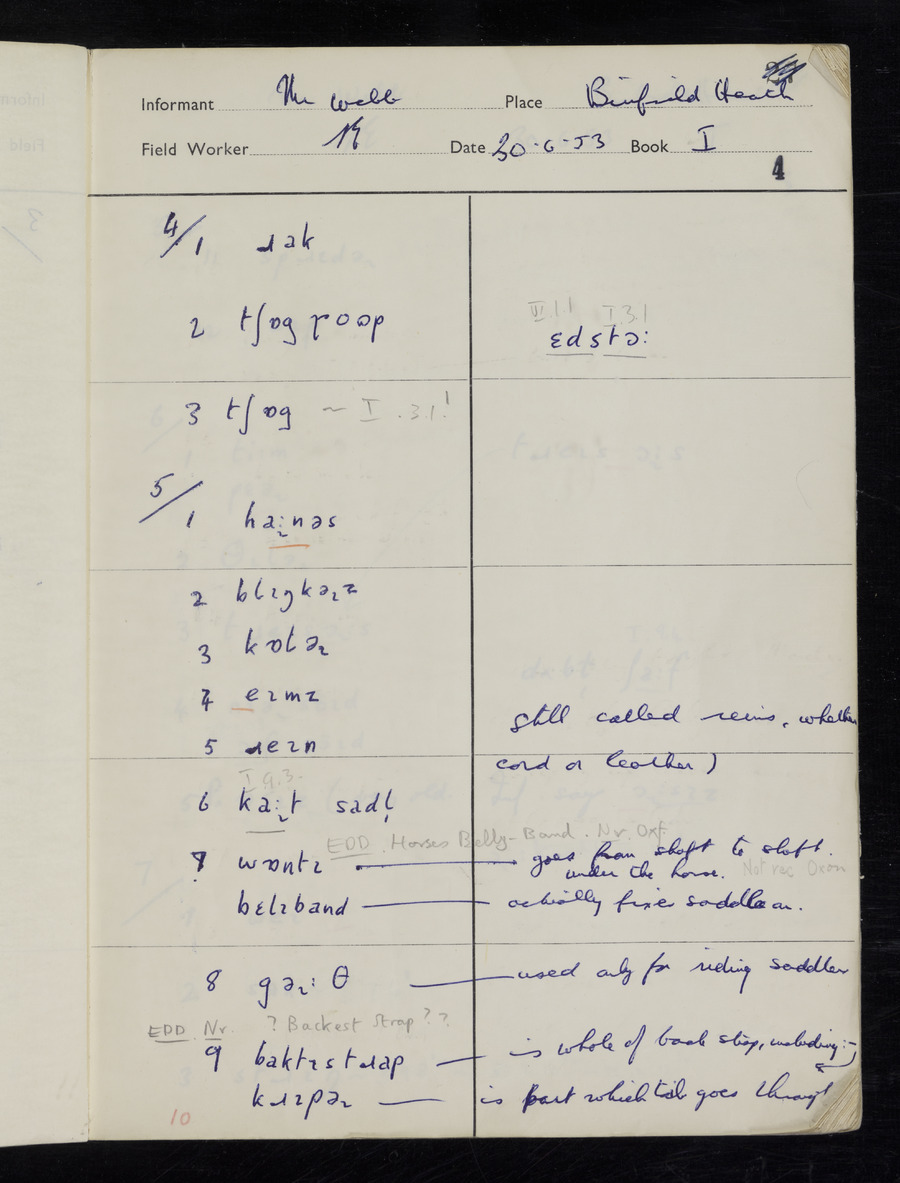 Informant Mr Webb Place Binfield Heath
Field Worker Date 30·6·53 Book I
4
4/1 ɹak
2 tʃɒg ɼoəp
VI.1.1 I.3.1
ɛdstəː
3 tʃɒg ~ I.3.1!
5/
1 haːnəs
2 blɪŋkəz
3 kɒlə
4 eɪmz
5 ɹeɪn
still called reins, whether
cord or leather)
I.9.3.
6 kaːt sadl̩
EDD. Horses Belly-Band. Nr. Oxf.
7 wɒntɪ goes from shaft to shaft.
under the horse. Not rec Oxon
bɛlɪband actually fixes saddle on.
8 gəːθ used only for riding saddles
EDD. Nr. ? Backest Strap??
9 baktɪstɹap is whole of back strap, including:-
kɹɪpə is part which tail goes through
10